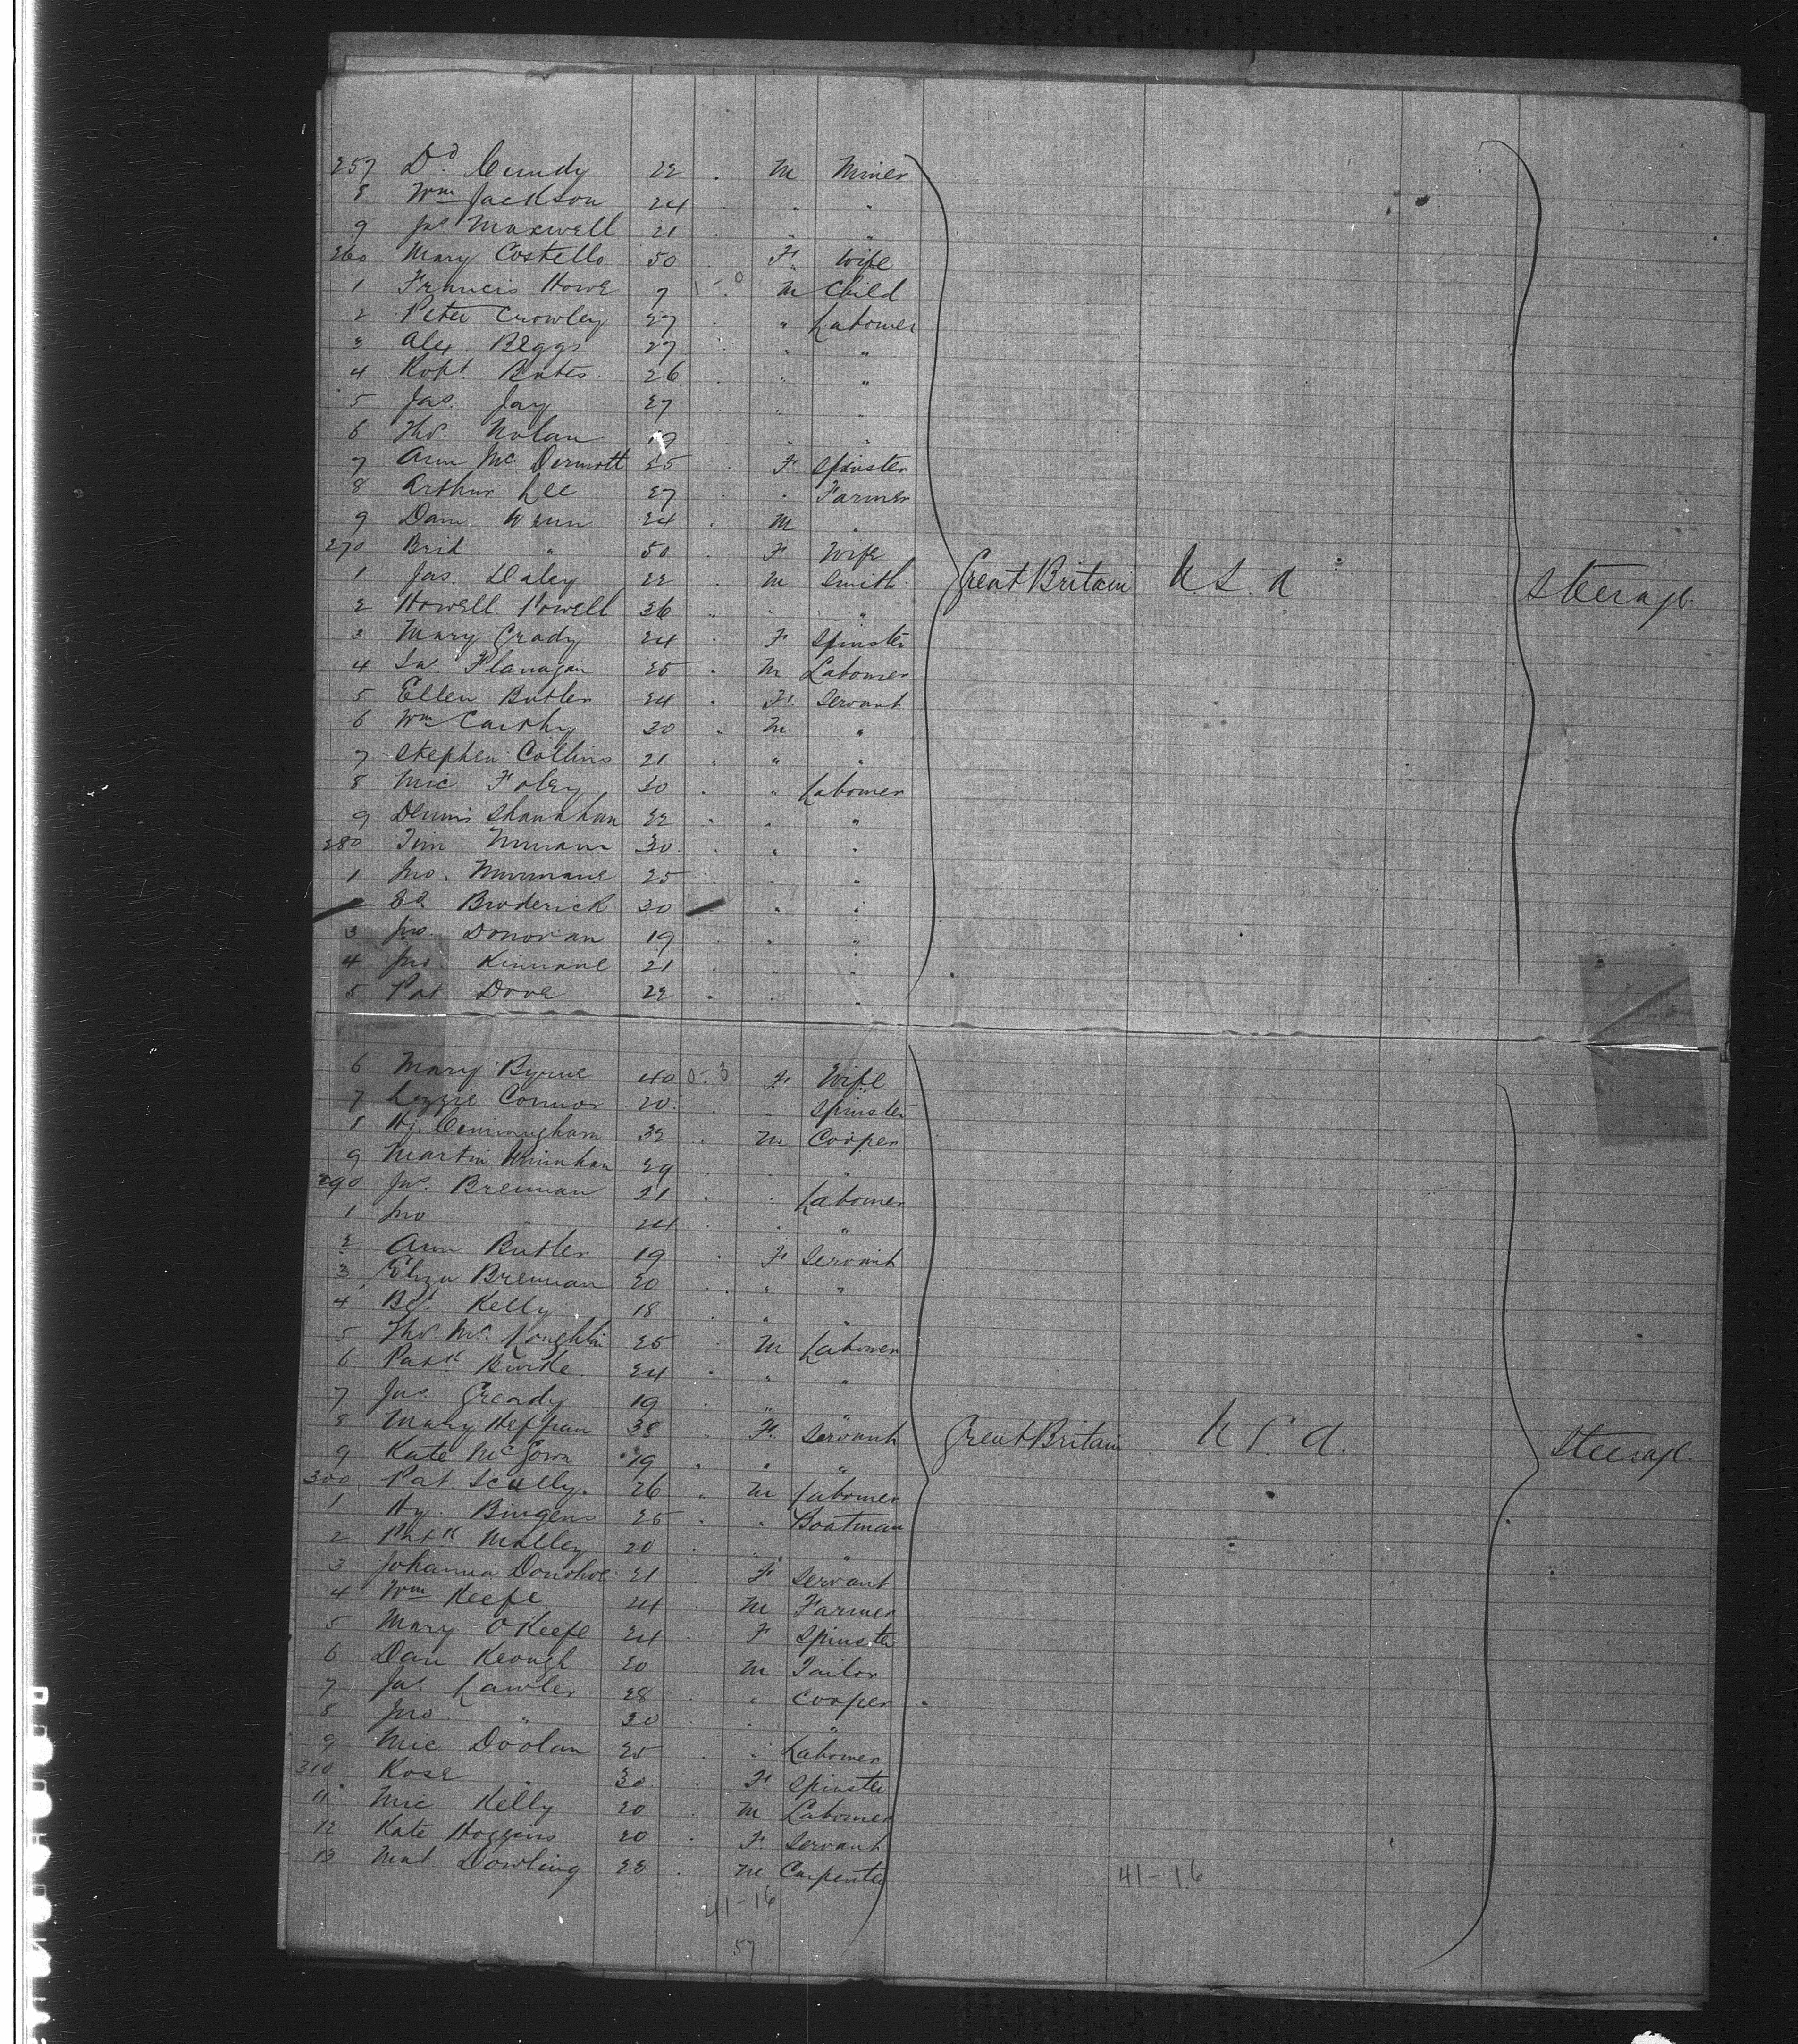 257 Dd. Cundy 22 . M Miner
8 Wm Jackson 24 " "
9 Jas Maxwell 21 " "
260 Mary Costello 50 F Wife
1 Francis Howe 7 1-0 M Child
2 Peter Crowley 27 " Labourer
3 Alex Beggs 27 " "
4 Robt. Bates 26 " "
5 Jas. Jay 27 " "
6 Thos. Nolan 19 " "
7 Ann McDermott 25 F Spinster
8 Arthur Lee 27 " Farmer
9 Dan. 24 . M "
270 Brid " 50 F Wife
1 Jas. Daley 22 M Smith Great Britain U.S.A Steerage
2 Howell Powell 36 " "
3 Mary Grady 24 F Spinster
4 Jas. Flanagan 25 M Labourer
5 Ellen Butler 24 F Servant
6 Wm Carthy 20 M "
7 Stephen Collins 21 " "
8 Mic Foley 30 " Labourer
9 Dennis Shanahan 22 " "
280 Tim 30 " "
1 Jno. Murnane 25 " "
2 Ed Broderick 30 " "
3 Jno. Donovan 19 " "
4 Jno. Kinnane 21 " "
5 Pat Dove 22 " "
6 Mary Byrne 40 0-3 F Wife
7 Lizzie Connor 20 " Spinster
8 Hy. Cunningham 32 M Cooper
9 Martin 29 " "
290 Jas. Brennan 21 " Labourer
1 Jno " 24 " "
2 Ann Butler 19 F Servant
3 Eliza Brennan 20 " "
4 Bdt. Kelly 18 " "
5 Thos. Mc.Loughlin 25 M Labourer
6 Patk Burke 24 " "
7 Jas. Gready 19 " "
8 Mary Heffran 38 F. Servant Great Britain U.S.A. Steerage
9 Kate McGown 19 " "
300 Pat Scully. 26 M Labourer
1 Hy. Bingens 25 " Boatman
2 Patk Malley 20 " "
3 Johanna Donohoe 21 F Servant
4 Wm Keefe 24 M Farmer
5 Mary O'Keefe 24 F Spinster
6 Dan Keough 20 M Tailor
7 Jas. Lawler 28 " Cooper
8 Jno. " 30 " "
9 Mic. Doolan 25 " Labourer
310 Rose " 30 F Spinster
11 Mic Kelly 20 M Labourer
12 Kate Hoggins 20 F Servant
13 Mat Dowling 28 M Carpenter
41-16 41-16
57